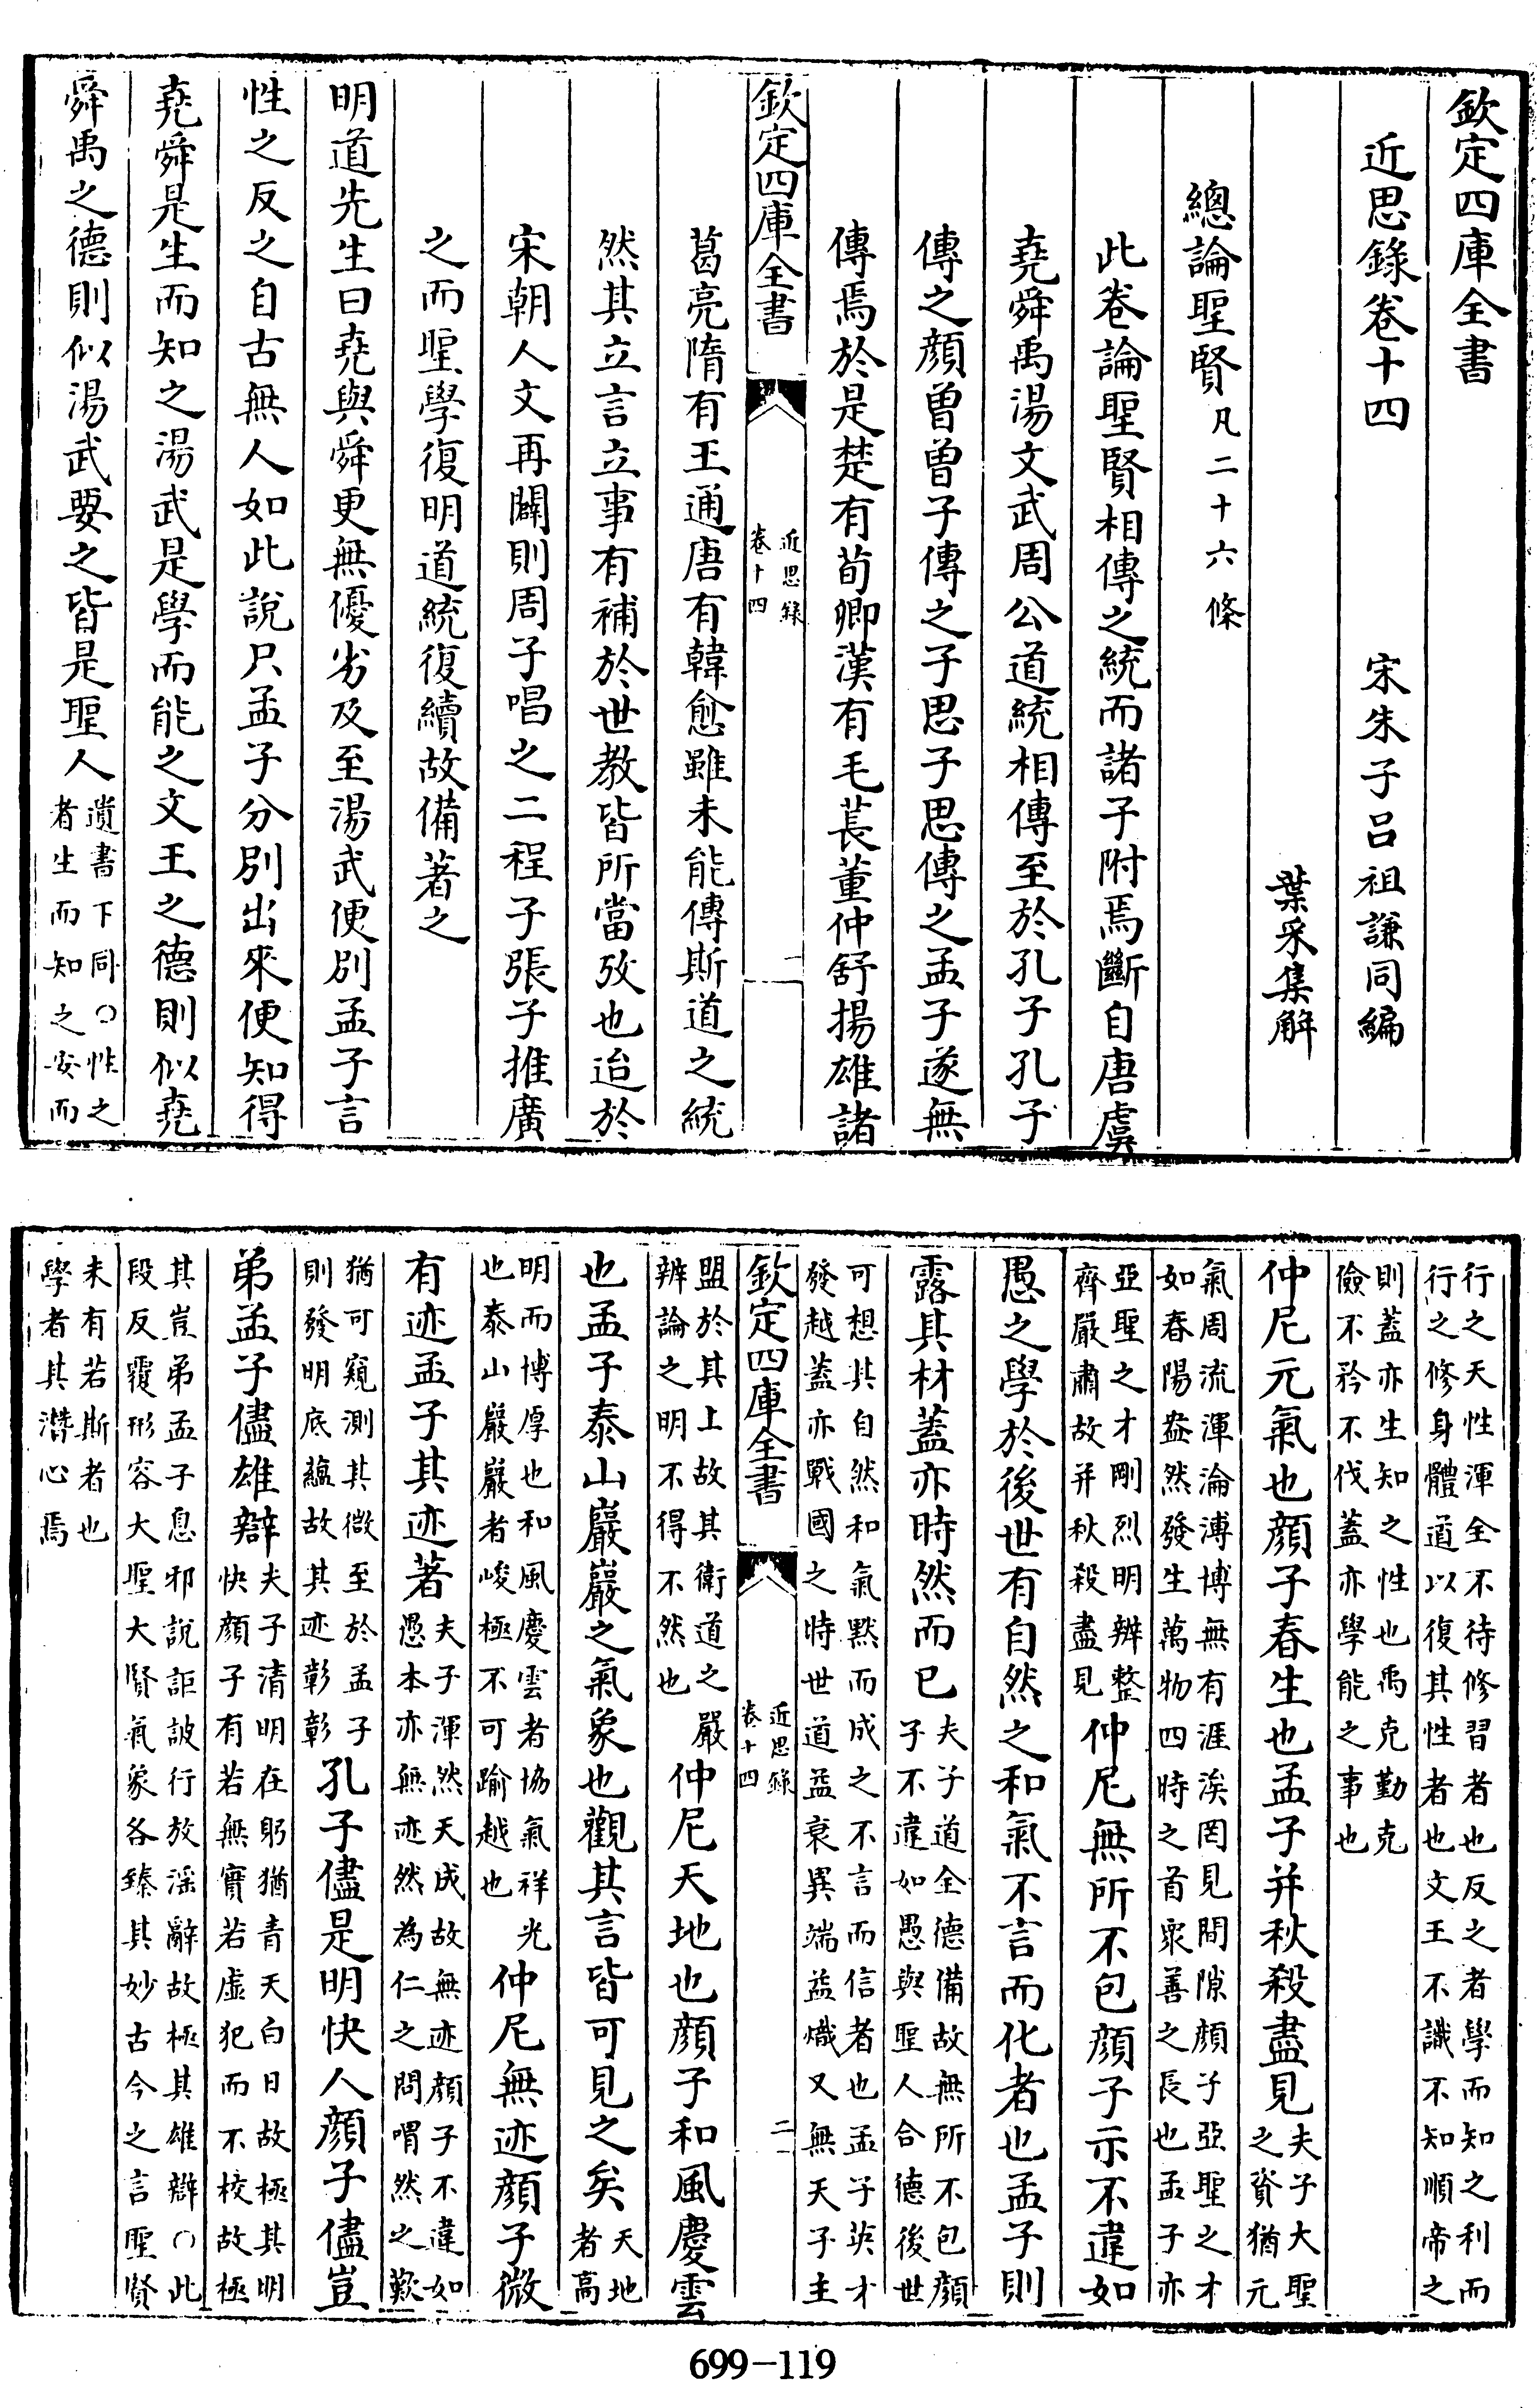 欽定四庫全書
近思錄卷十四
宋朱子呂祖謙同編
葉采集解
總論聖賢凡二十六條
此卷論聖賢相傳之統而諸子附焉斷自唐虞
堯舜禹湯文武周公道統相傳至於孔子孔子
傳之顔曾曾子傳之子思子思傳之孟子遂無
傳焉於是楚有荀卿漢有毛萇董仲舒揚雄諸
欽定四庫全書
近思錄
卷十四
一
葛亮隋有王通唐有韓愈雖未能傳斯道之統
然其立言立事有補於世教皆所當攷也迨於
宋朝人文再闢則周子唱之二程子張子推廣
之而聖學復明道統復續故備著之
明道先生曰堯與舜更無優劣及至湯武便别孟子言
性之反之自古無人如此說只孟子分别出來便知得
堯舜是生而知之湯武是學而能之文王之德則似堯
舜禹之德則似湯武要之皆是聖人
遺書下同○性之
者生而知之安而
行之天性渾全不待修習者也反之者學而知之利而
行之修身體道以復其性者也文王不識不知順帝之
則蓋亦生知之性也禹克勤克
儉不矜不伐蓋亦學能之事也
仲尼元氣也顔子春生也孟子并秋殺盡見
夫子大聖
之資猶元
氣周流渾淪溥博無有涯涘罔見間隙顔子亞聖之才
如春陽盎然發生萬物四時之首衆善之長也孟子亦
亞聖之才剛烈明辨整
齊嚴肅故并秋殺盡見
仲尼無所不包顔子示不違如
愚之學於後世有自然之和氣不言而化者也孟子則
露其材蓋亦時然而已
夫子道全德備故無所不包顔
子不違如愚與聖人合德後世
可想其自然和氣默而成之不言而信者也孟子英才
發越蓋亦戰國之時世道益衰異端益熾又無夫子主
欽定四庫全書
近思錄
卷十四
二
盟於其上故其衛道之嚴
辨論之明不得不然也
仲尼天地也顔子和風慶雲
也孟子泰山巖巖之氣象也觀其言皆可見之矣
天地
者高
明而博厚也和風慶雲者協氣祥光
也泰山巖巖者峻極不可踰越也
仲尼無迹顔子微
有迹孟子其迹著
夫子渾然天成故無迹顔子不違如
愚本亦無迹然為仁之問喟然之歎
猶可窺測其微至於孟子
則發明底蘊故其迹彰彰
孔子儘是明快人顔子儘豈
弟孟子儘雄辯
夫子清明在躬猶青天白日故極其明
快顔子有若無實若虛犯而不校故極
其豈弟孟子息邪說詎詖行放淫辭故極其雄辯○此
段反覆形容大聖大賢氣象各臻其妙古今之言聖賢
未有若斯者也
學者其濳心焉
699-119